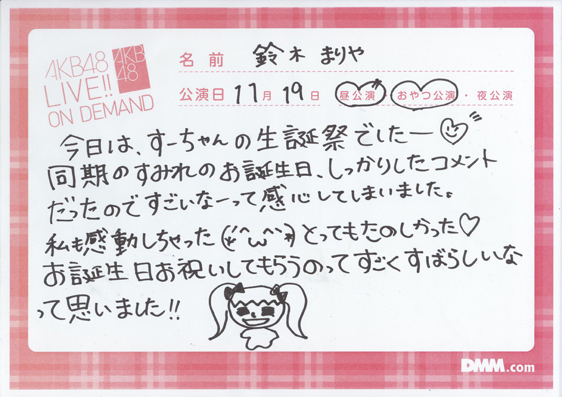 AKB48
LIVE!!
ON DEMAND
AKB
48
名前 鈴木 まりや
公演日 11月 19日 昼公演・おやつ公演・夜公演
今日は、すーちゃんの生誕祭でしたー♡
同期のすみれのお誕生日、しっかりしたコメント
だったのですごいなーって感心してしまいました。
私も感動しちゃった(*^ω^*)とってもたのしかった♡
お誕生日お祝いしてもらうのってすごくすばらしいな
って思いました!!
DMM.com